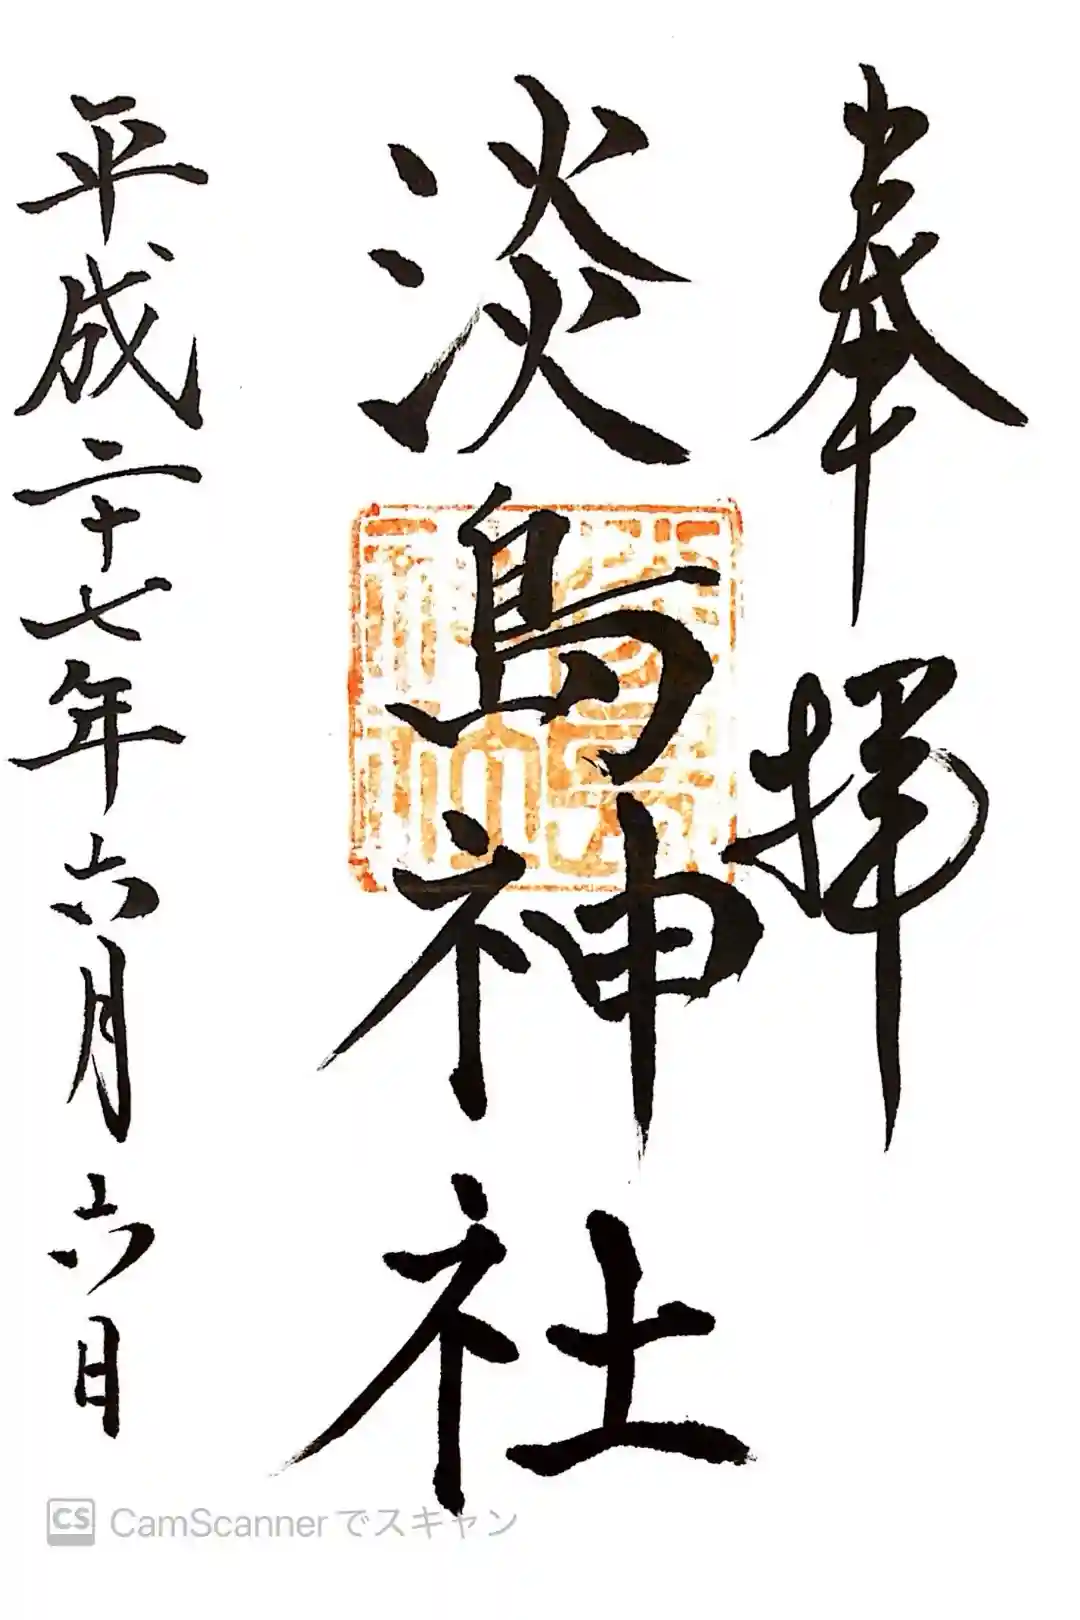 奉拝
淡島神社
平成二十七年六月六日
CS CamScannerでスキャン